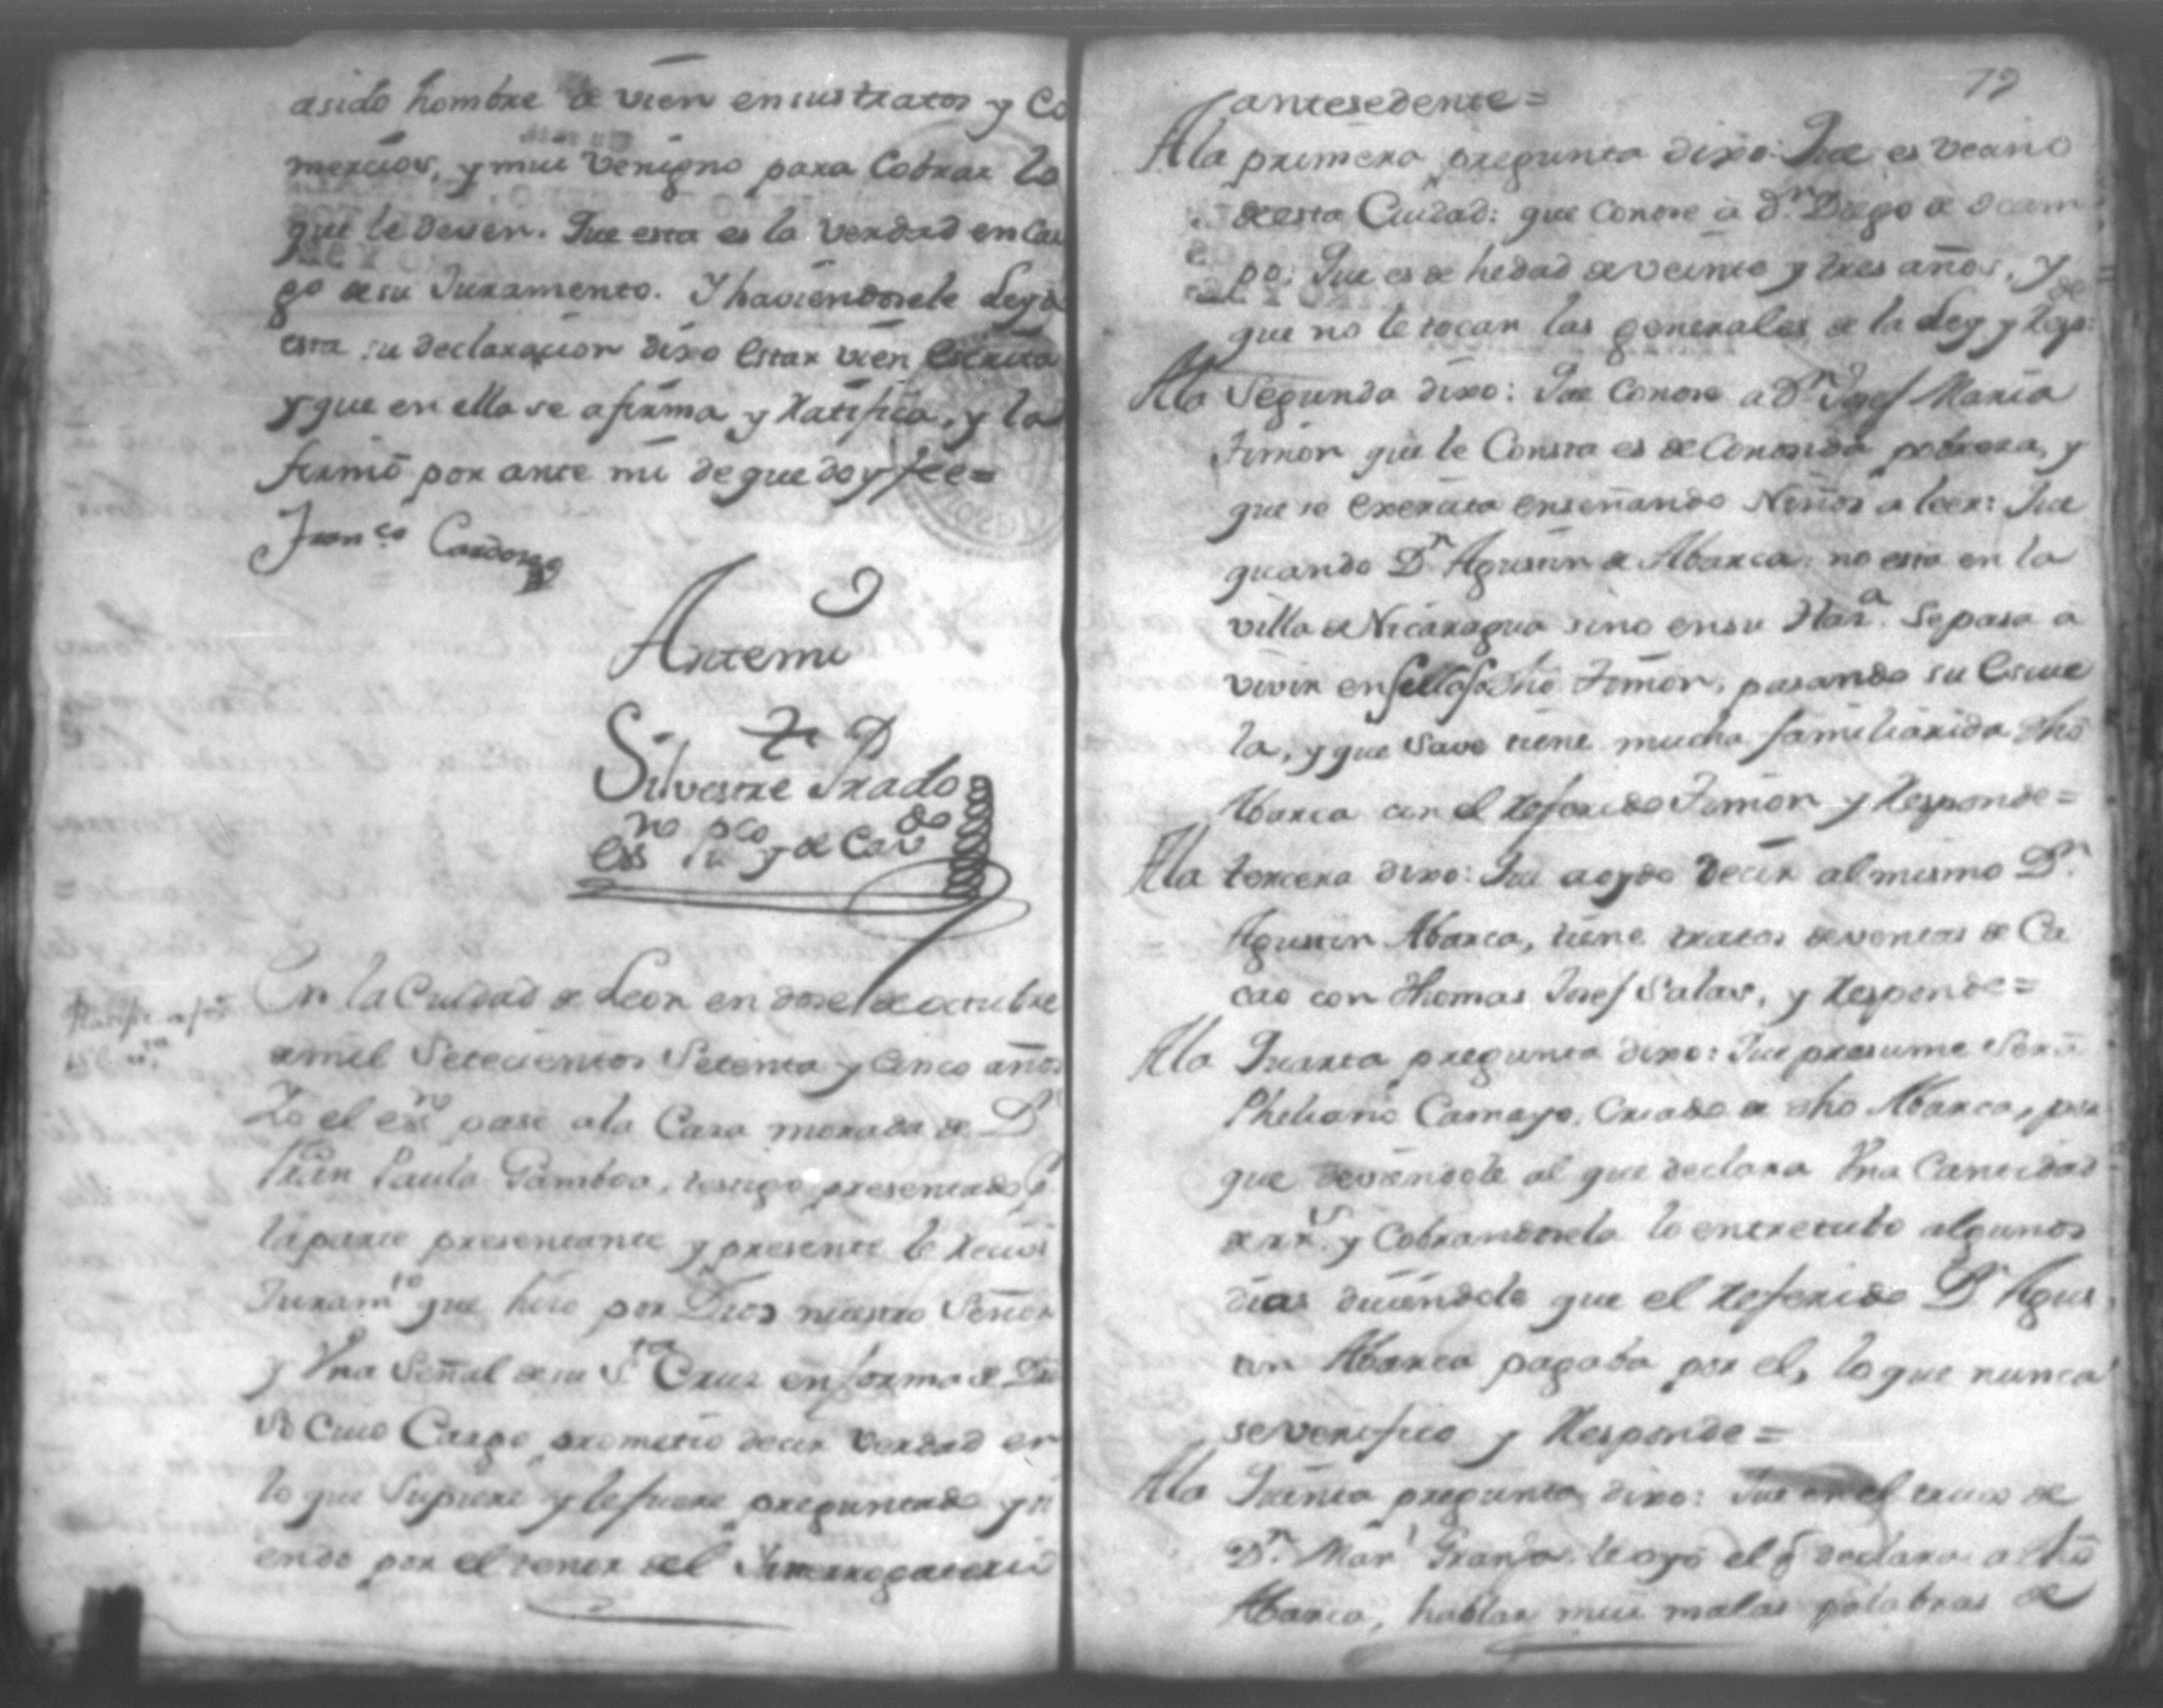 asido hombre de vien en sus tratos y Co
mercios, y mui venigno para Cobrar lo
que le deven. Que esta es la verdad en Car
go de su Juramento. Y haviendosele Leydo
esta su declaracion dixo estar vien escrita
y que en ella se afirma y Ratifica, y la
firmó por ante mi de que doy fee =
Franco Cardoso
Antemi
Silvestre Prado
Essno pco y de Cavdo
En la Ciudad de Leon en dose de octubre
de mil Setecientos Setenta y Cinco años
Yo el essno pase ala Casa morada de Dn
Fran Paula Gamboa, testigo presentado p
la parte presentante y presente le Recivi
Juramto que hizo por Dios nuestro Señor
y Vna Señal de su Sta Cruz en forma de Dro
vo cuio Cargo prometio decir verdad en
lo que Supiere y le fuere preguntado y si
endo por el tenor del Interrogatorio
79
antesedente =
Ala primera pregunta dixo: Que es vecino
de esta Ciudad: que Conose á Dn Diego de Ocam
po: Que es de hedad de veinte y tres años, y
que no le tocan las generales de la Ley y
Ala Segunda dixo: Que Conose a Dn Josef Maria
Timon que le Consta es de Conosida pobreza, y
que se exercita enseñando Niños a leer: Que
quando Dn Agustin de Abarca no esta en la
villa de Nicaragua sino en su Haza se pasa a
vivir en dho Timon, pasando su Escue
la, y que save tiene mucha familiarida dho
Abarca con el Referido Timon y Responde =
Ala tercera dixo: Que a oydo decir al mismo Dn
Agustin Abarca, tiene tratos de ventas de Ca
cao con Thomas Josef Salas, y Responde =
Ala Quarta pregunta dixo: Que presume Será
Pheliano Camayo, Criado de dho Abarca, por
que deviendole al que declara Vna Cantidad
de rrs y Cobrandosela lo entretubo algunos
dias diciendole que el Referido Dn Agus
tin Abarca pagaba por el, lo que nunca
se verifico y Responde =
Ala Quinta pregunta dixo: Que en el truco de
Dn Manl Granja le oyó el q declara a dho
Abarca, hablar mui malas palabras de